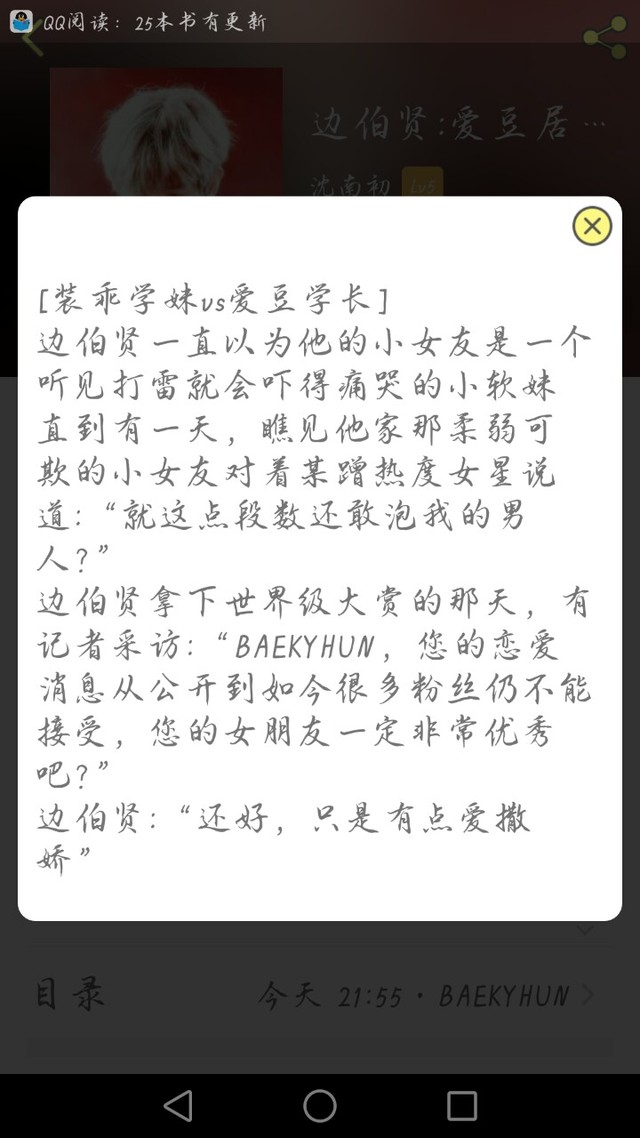 QQ阅读：25本书有更新
边伯贤:爱豆居…
沈南初 Lv5
[装乖学妹vs爱豆学长]
边伯贤一直以为他的小女友是一个
听见打雷就会吓得痛哭的小软妹
直到有一天，瞧见他家那柔弱可
欺的小女友对着某蹭热度女星说
道:“就这点段数还敢泡我的男
人?”
边伯贤拿下世界级大赏的那天，有
记者采访:“BAEKYHUN，您的恋爱
消息从公开到如今很多粉丝仍不能
接受，您的女朋友一定非常优秀
吧?”
边伯贤:“还好，只是有点爱撒
娇”
目录 今天 21:55·BAEKYHUN